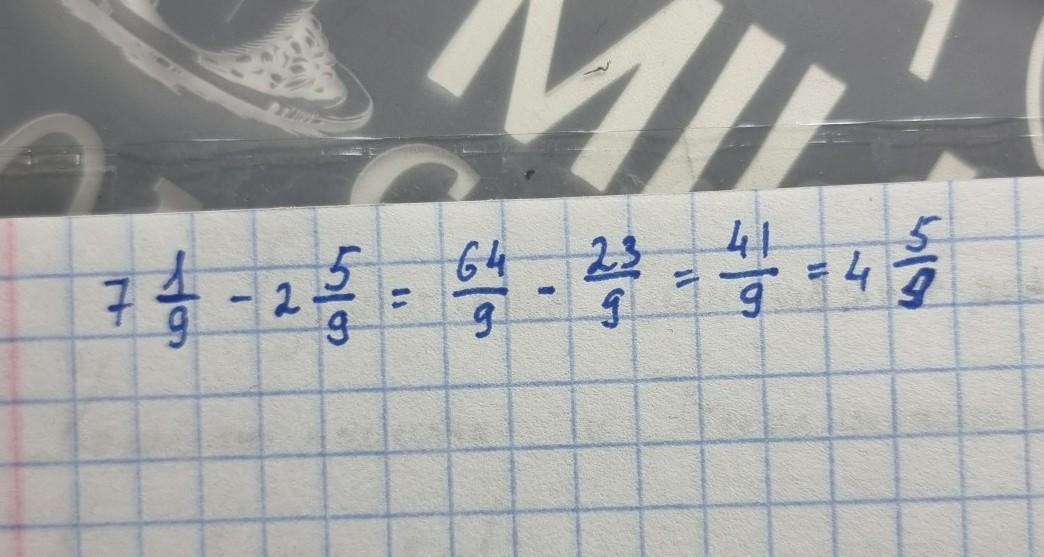 MIL
7 1/9 - 2 5/9 = 64/9 - 23/9 = 41/9 = 4 5/9